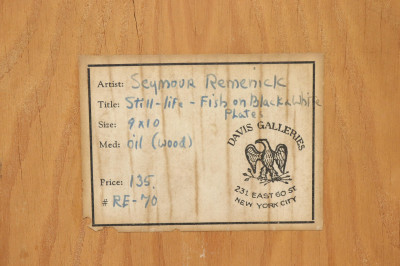 Artist: Seymour Remenick
Title: Still-life - Fish on Black & White
Plate
Size: 9x10
Med: Oil (wood)
Price: 135.
# RE-70
DAVIS GALLERIES
231 EAST 60 ST.
NEW YORK CITY